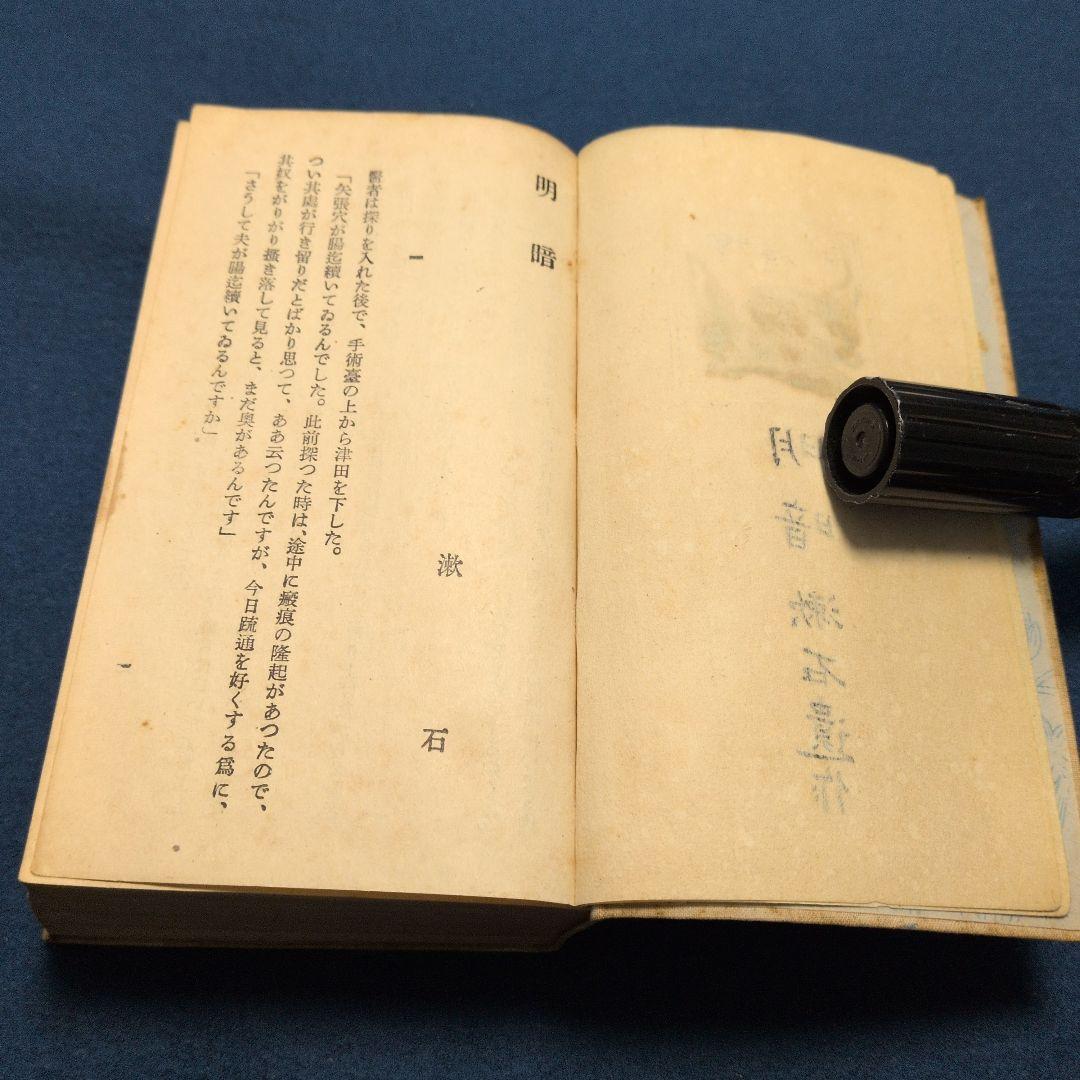 明暗 漱石遺作
明暗
漱石
一
醫者は探りを入れた後で、手術臺の上から津田を下した。
「矢張穴が腸迄續いてゐるんでした。此前探つた時は、途中に瘢痕の隆起があつたので、
つい其處が行き留りだとばかり思つて、ああ云つたんですが、今日疏通を好くする爲に、
其奴をがりがり掻き落して見ると、まだ奥があるんです」
「さうして夫が腸迄續いてゐるんですか」
一